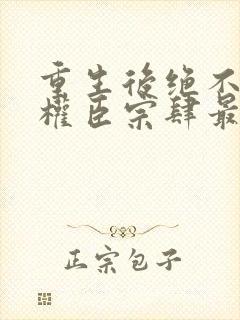 重生後绝不
權臣宗肆最
正宗包子